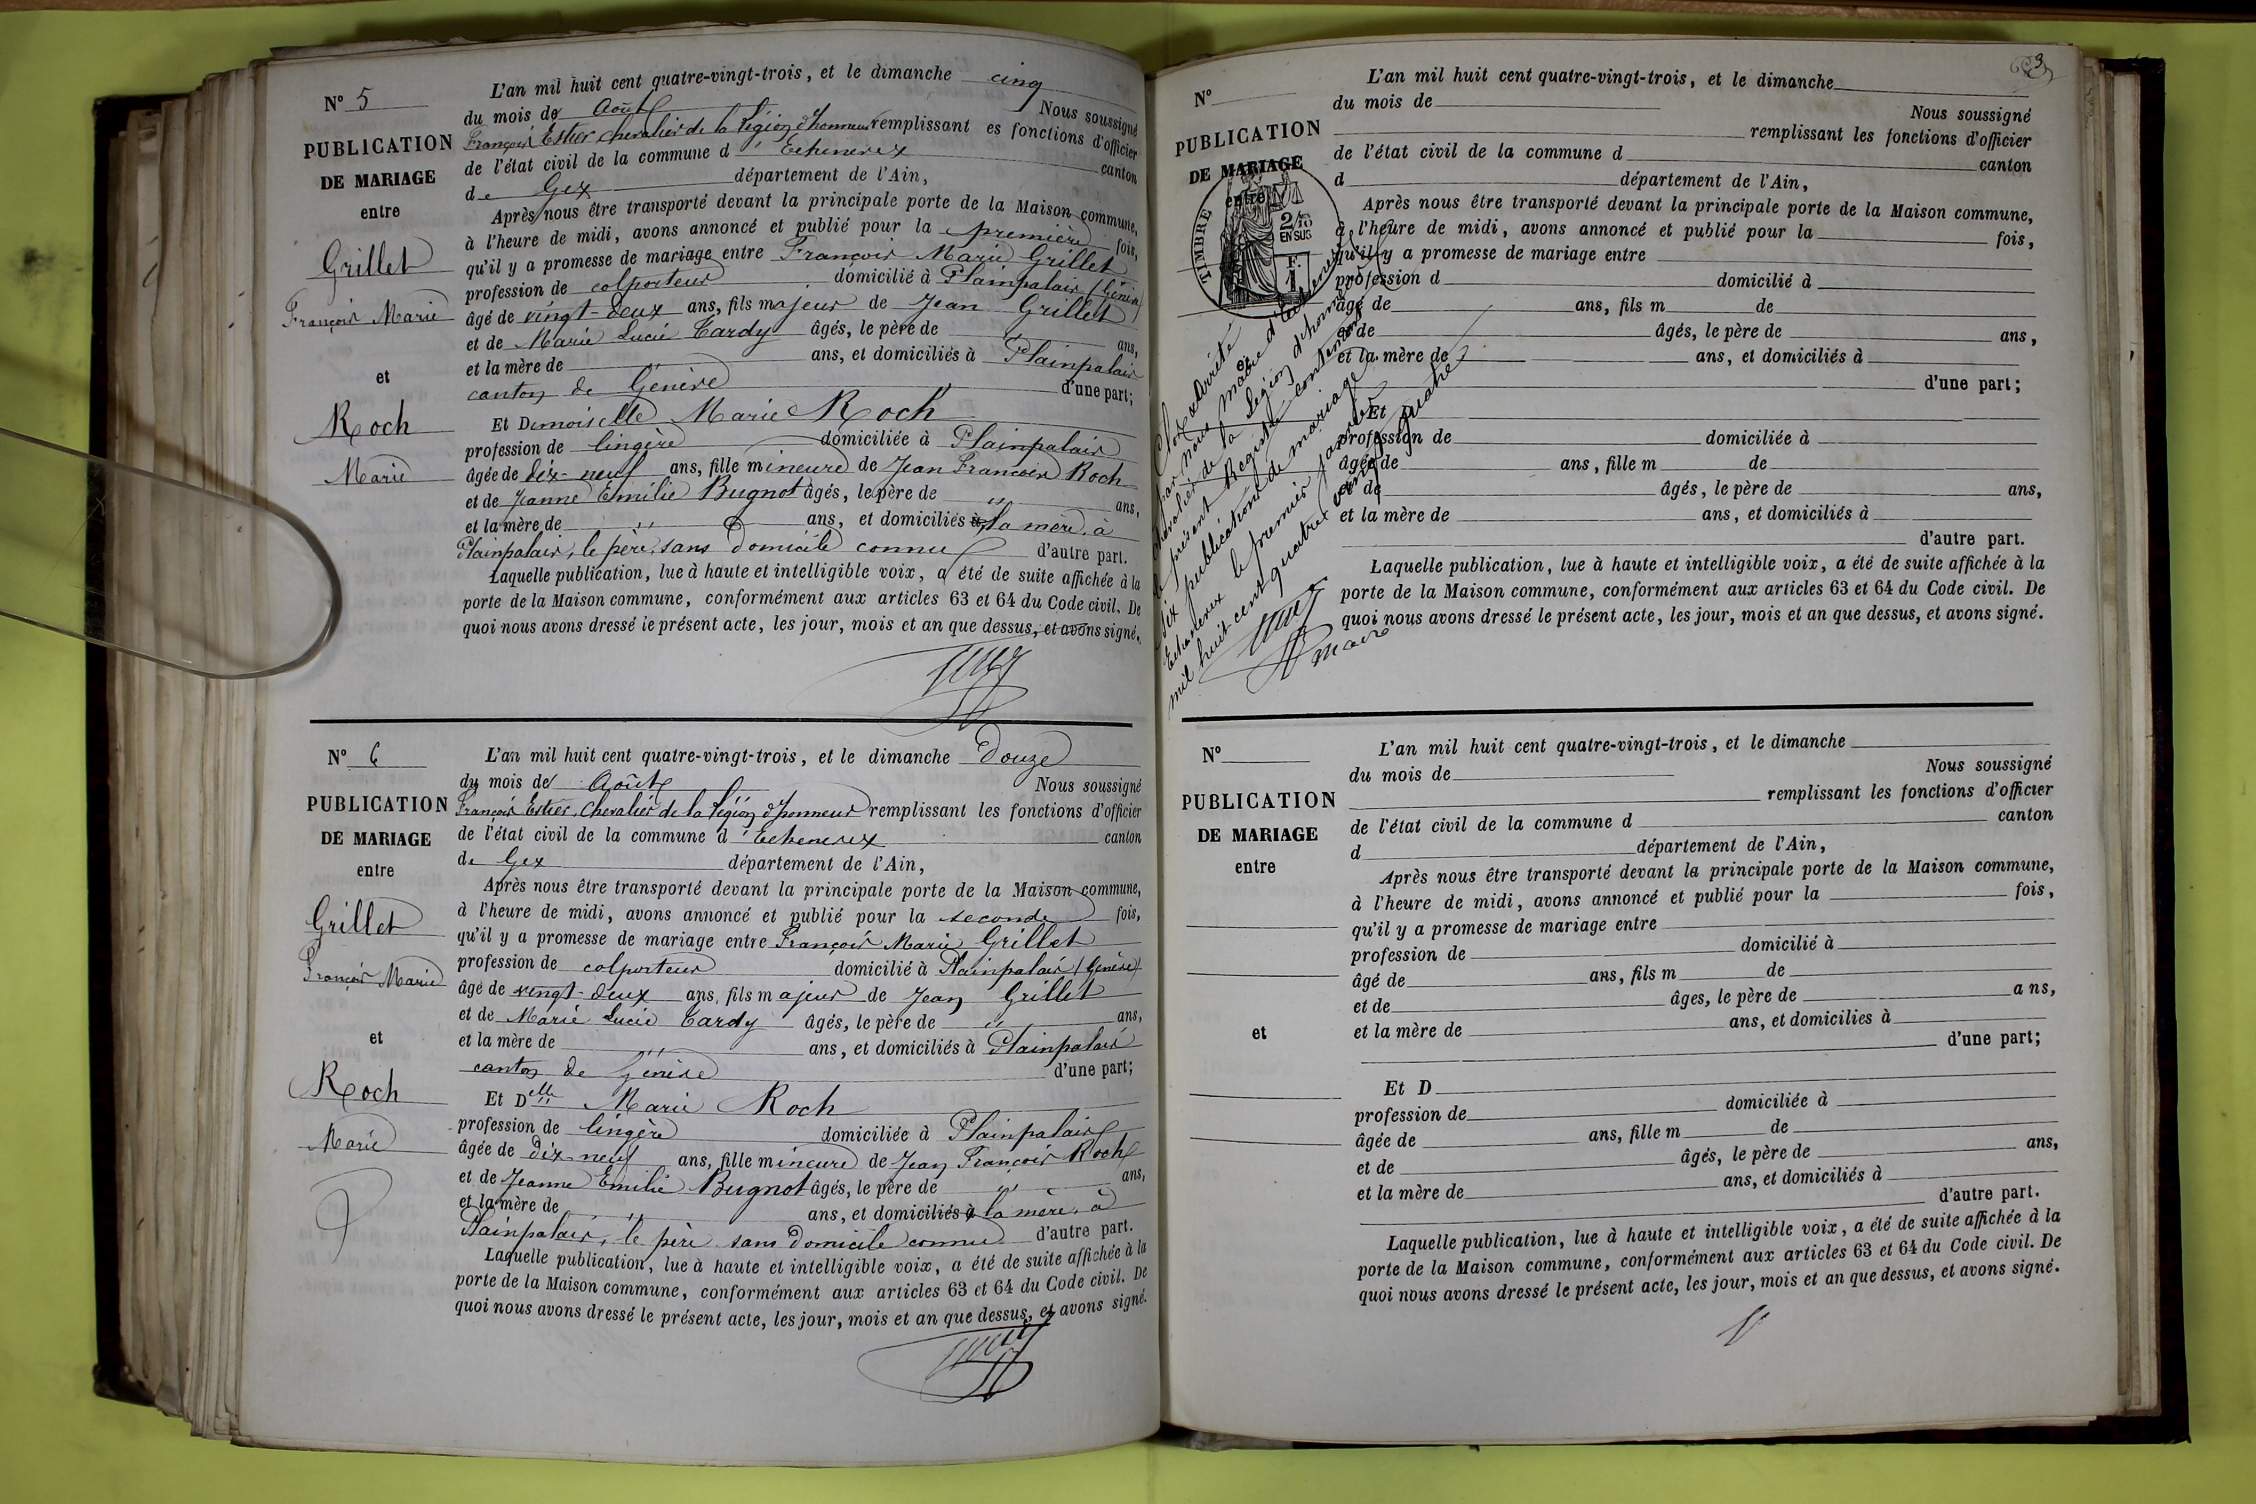 N° 5
PUBLICATION
DE MARIAGE
entre
Grillet
François Marie
et
Roch
Marie
L'an mil huit cent quatre-vingt-trois, et le dimanche cinq
du mois de Août Nous soussigné
François Estier chevalier de la Légion d'honneur remplissant es fonctions d'officier
de l'état civil de la commune d'Echenevex canton
de Gex département de l'Ain,
Après nous être transporté devant la principale porte de la Maison commune,
à l'heure de midi, avons annoncé et publié pour la première fois,
qu'il y a promesse de mariage entre François Marie Grillet
profession de colporteur domicilié à Plainpalais (Genève)
âgé de vingt-deux ans, fils majeur de Jean Grillet
et de Marie Lucie Tardy âgés, le père de ans,
et la mère de " ans, et domiciliés à Plainpalais
canton de Genève d'une part;
Et Demoiselle Marie Roch
profession de lingère domiciliée à Plainpalais
âgée de dix-neuf ans, fille mineure de Jean François Roch
et de Jeanne Emilie Bugnot âgés, le père de " ans,
et la mère de " ans, et domiciliés à la mère, à
Plainpalais, le père, sans domicile connu d'autre part.
Laquelle publication, lue à haute et intelligible voix, a été de suite affichée à la
porte de la Maison commune, conformément aux articles 63 et 64 du Code civil. De
quoi nous avons dressé le présent acte, les jour, mois et an que dessus, et avons signé.
N° 6
PUBLICATION
DE MARIAGE
entre
Grillet
François Marie
et
Roch
Marie
L'an mil huit cent quatre-vingt-trois, et le dimanche Douze
du mois de Août Nous soussigné
François Estier, Chevalier de la Légion d'honneur remplissant les fonctions d'officier
de l'état civil de la commune d'Echenevex canton
de Gex département de l'Ain,
Après nous être transporté devant la principale porte de la Maison commune,
à l'heure de midi, avons annoncé et publié pour la seconde fois,
qu'il y a promesse de mariage entre François Marie Grillet
profession de colporteur domicilié à Plainpalais (Genève)
âgé de vingt-deux ans, fils majeur de Jean Grillet
et de Marie Lucie Tardy âgés, le père de " ans,
et la mère de " ans, et domiciliés à Plainpalais
canton de Genève d'une part;
Et Delle Marie Roch
profession de lingère domiciliée à Plainpalais
âgée de dix-neuf ans, fille mineure de Jean François Roch
et de Jeanne Emilie Bugnot âgés, le père de " ans,
et la mère de " ans, et domiciliés à la mère, à
Plainpalais, le père sans domicile connu d'autre part.
Laquelle publication, lue à haute et intelligible voix, a été de suite affichée à la
porte de la Maison commune, conformément aux articles 63 et 64 du Code civil. De
quoi nous avons dressé le présent acte, les jour, mois et an que dessus, et avons signé.
N°
PUBLICATION
DE MARIAGE
entre
TIMBRE
2/10
EN SUS
F.
1
Clos & Arrêté
par nous maire d'Echenevex
chevalier de la Légion d'honneur
le présent Registre contenant
six publications de mariage
Echenevex le premier janvier
mil huit cent quatre vingt quatre
maire
L'an mil huit cent quatre-vingt-trois, et le dimanche
du mois de Nous soussigné
remplissant les fonctions d'officier
de l'état civil de la commune d canton
d département de l'Ain,
Après nous être transporté devant la principale porte de la Maison commune,
à l'heure de midi, avons annoncé et publié pour la fois,
qu'il y a promesse de mariage entre
profession d domicilié à
âgé de ans, fils m de
et de âgés, le père de ans,
et la mère de ans, et domiciliés à
d'une part;
Et
profession de domiciliée à
âgée de ans, fille m de
et de âgés, le père de ans,
et la mère de ans, et domiciliés à
d'autre part.
Laquelle publication, lue à haute et intelligible voix, a été de suite affichée à la
porte de la Maison commune, conformément aux articles 63 et 64 du Code civil. De
quoi nous avons dressé le présent acte, les jour, mois et an que dessus, et avons signé.
N°
PUBLICATION
DE MARIAGE
entre
et
L'an mil huit cent quatre-vingt-trois, et le dimanche
du mois de Nous soussigné
remplissant les fonctions d'officier
de l'état civil de la commune d canton
d département de l'Ain,
Après nous être transporté devant la principale porte de la Maison commune,
à l'heure de midi, avons annoncé et publié pour la fois,
qu'il y a promesse de mariage entre
profession de domicilié à
âgé de ans, fils m de
et de âges, le père de ans,
et la mère de ans, et domicilies à
d'une part;
Et D
profession de domiciliée à
âgée de ans, fille m de
et de âgés, le père de ans,
et la mère de ans, et domiciliés à
d'autre part.
Laquelle publication, lue à haute et intelligible voix, a été de suite affichée à la
porte de la Maison commune, conformément aux articles 63 et 64 du Code civil. De
quoi nous avons dressé le présent acte, les jour, mois et an que dessus, et avons signé.